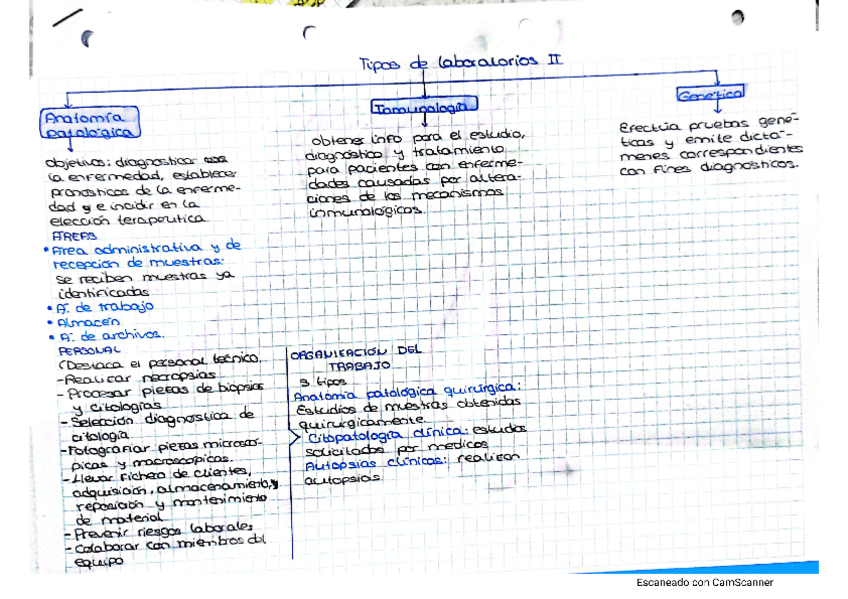 Tipos de laboratorios II
Anatomía
patológica
objetivos: diagnosticar
la enfermedad, establecer
pronosticos de la enferme-
dad y e incidir en la
elección terapeutica
ÁREAS
• Área administrativa y de
recepción de muestras:
se reciben muestras ya
identificadas
• A. de trabajo
• Almacén
• A. de archivos.
PERSONAL
(Destaca el personal técnico.
- Realizar necropsias
- Procesar piezas de biopsias
y citologías
- Selección diagnostica de
citología
- Fotografiar piezas microsco-
picas y macroscopicas.
- Llevar fichero de clientes,
adquisición, almacenamiento, y
reposición y mantenimiento
de material
- Prevenir riesgos laborales
- Colaborar con miembros del
equipo
ORGANIZACIÓN DEL
TRABAJO
3 tipos
Anatomía patológica quirúrgica:
Estudios de muestras obtenidas
quirurgicamente.
Citopatología clínica: estudios
solicitados por medicos
Autopsias clínicas: realizan
autopsias
Inmunología
obtener info para el estudio,
diagnostico y tratamiento
para pacientes con enferme-
dades causadas por altera-
ciones de los mecanismos
inmunológicos.
Genética
Efectúa pruebas gené-
ticas y emite dictá-
menes correspondientes
con fines diagnosticos.
Escaneado con CamScanner